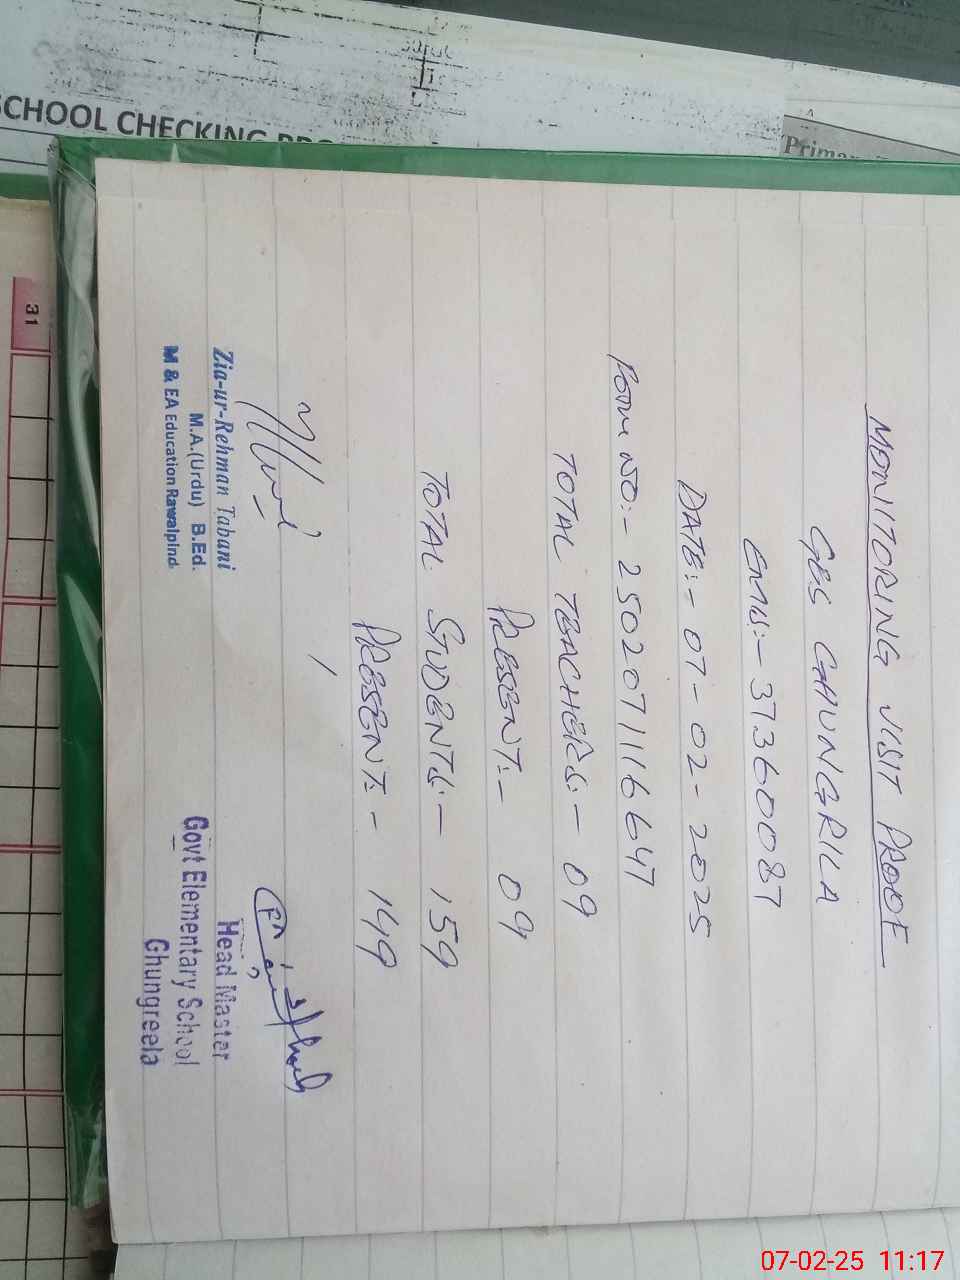 SCHOOL CHECKING
31
MONITORING VISIT PROOF
GES GHUNGRILA
EMIS:- 37360087
DATE:- 07-02-2025
FORM NO:- 2502071116647
TOTAL TEACHERS:- 09
PRESENT:- 09
TOTAL STUDENTS:- 159
PRESENT:- 149
Zia-ur-Rehman Tabani
M.A.(Urdu) B.Ed.
M & EA Education Rawalpind
Head Master
Govt Elementary School
Ghungreela
07-02-25 11:17